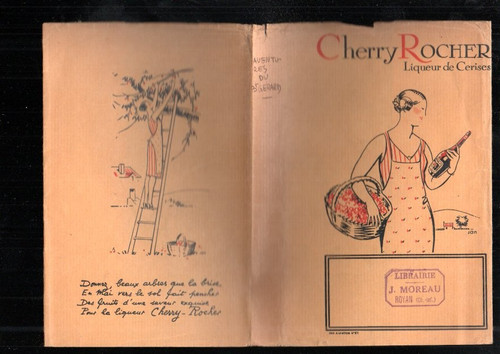 Donnez, beaux arbres que la brise,
En Mai vers le sol fait pencher
Des fruits d'une saveur exquise
Pour la liqueur Cherry-Rocher
AVENTU
RES
DU
Cherry ROCHER
Liqueur de Cerises
LIBRAIRIE
J. MOREAU
ROYAN